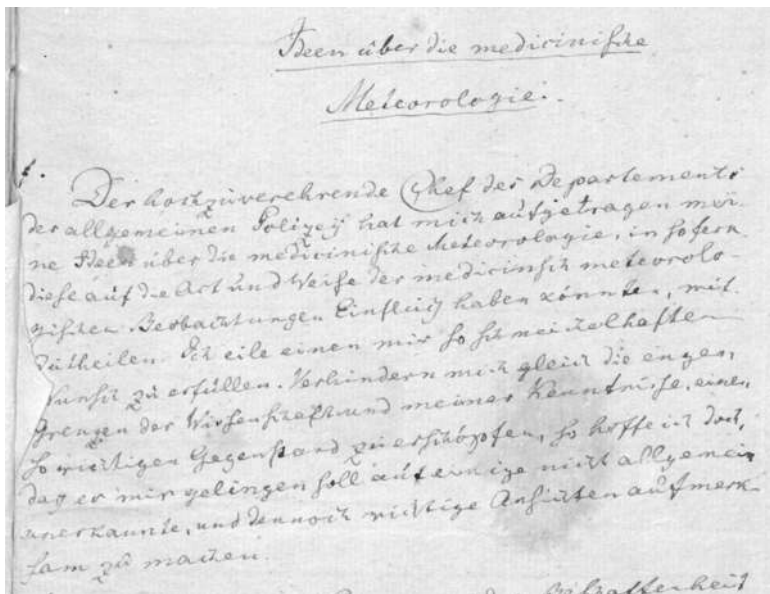 Ideen über die medicinische
Meteorologie.
1.
Der hochzuverehrende Chef des Departements
der allgemeinen Polizeÿ hat mich aufgetragen mei-
ne Ideen über die medicinische Meteorologie, in sofern
diese auf die Art und Weise der medicinsch meteorolo-
gischen Beobachtungen Einfluß haben könnten, mit
zutheilen. Ich eile einen mir so schmeichelhaften
Wunsch zu erfüllen. Verhindern mich gleich die engen
Grenzen der Wissenschaft und meiner Kenntnisse, einen
so wichtigen Gegenstand zu erschöpfen, so hoffe ich doch,
daß es mir gelingen soll auf einige nicht allgemein
anerkannte, und dennoch wichtige Ansichten aufmerk-
sam zu machen.